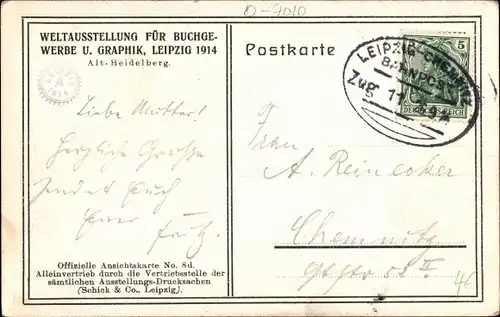 O-7010
WELTAUSSTELLUNG FÜR BUCHGE-
WERBE U. GRAPHIK, LEIPZIG 1914
Alt-Heidelberg.
Liebe Mutter!
Herzliche Grüße
sendet Euch
Euer Fritz.
Offizielle Ansichtskarte No. 8d.
Alleinvertrieb durch die Vertriebsstelle der
sämtlichen Ausstellungs-Drucksachen
(Schick & Co., Leipzig).
Postkarte
LEIPZIG-CHEMNITZ
BAHNPOST
Zug 11
5
Frau
A. Reinecker
Chemnitz
52 II